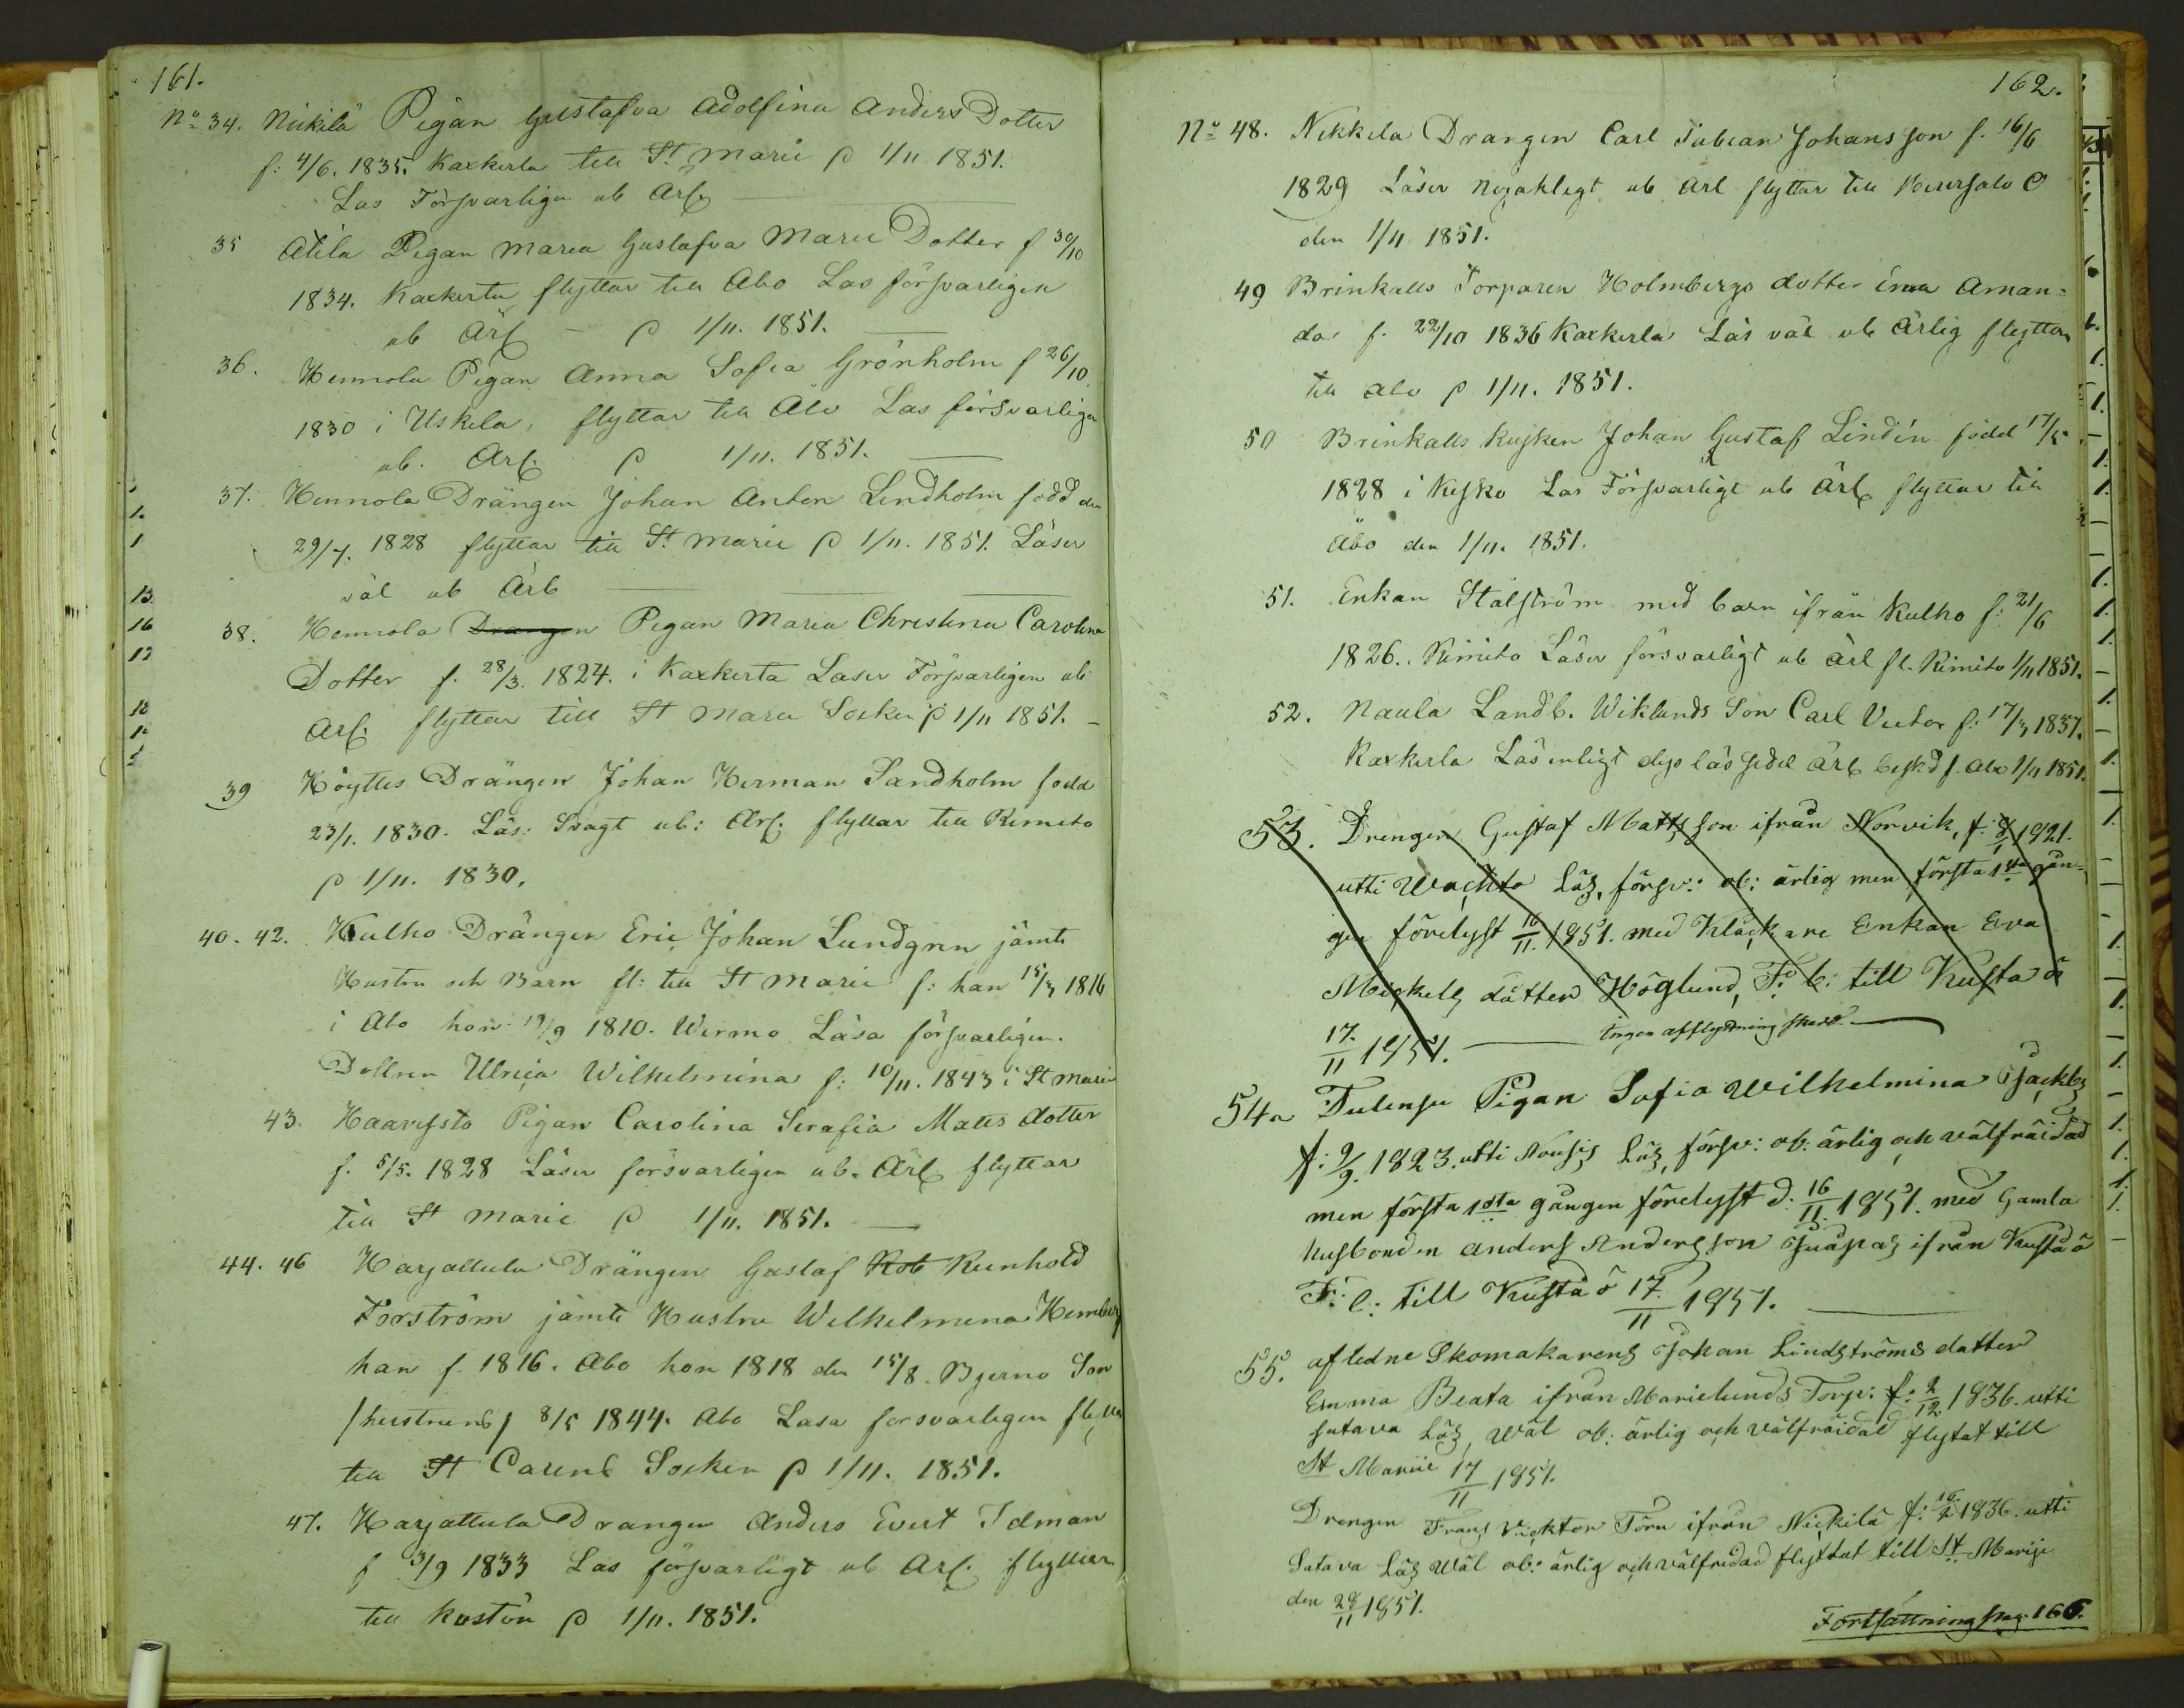 161.
No 34. Nikilä Pigan Gustafva Adolfina Anders Dotter
f: 4/6. 1835. Kaxkerta till St Marie d 1/11 1851.
Las Försvarligen ab Ärl
35 Atila Pigan Maria Gustafva Marie Dotter f 30/10
1834. Kaxkerta flyttar till Åbo Las försvarligen
ab Ärl – d 1/11. 1851.
36. Hennola Pigan Anna Sofia Grönholm f 26/10
1830 i Uskela, flyttar till Åbo Las försvarligen
ab. Ärl. d 1/11. 1851.
37. Hennola Drängen Johan Anton Lindholm född den
29/7. 1828 flyttar till St Marie d 1/11. 1851. Läser
väl ab Ärl
38. Hennola Drangen Pigan Maria Christina Carolina
Dotter f. 28/3. 1824. i Kaxkerta Laser Försvarligen ab
Ärl. flyttar till St Marie Socken d 1/11 1851. –
39 Höyttes Drängen Johan Herman Sandholm född
23/1. 1830. Läs: Svagt ab: Ärl. flyttar till Rimito
d 1/11. 1830.
40. 42. Kulho Drängen Eric Johan Lundgren jämte
Hustru och Barn fl: till St Marie f: han 15/3 1816
i Åbo hon 19/9 1810. Wirmo Läsa försvarligen.
Dottren Ulrica Wilhelmina f: 10/11. 1843 i St Marie
43. Haarfsto Pigan Carolina Serafia Matts dotter
f. 5/5. 1828 Läser försvarligen ab. Ärl flyttar
till St Marie d 1/11. 1851.
44. 46 Harjattula Drängen Gustaf Rob Reinhold
Forström jämte Hustru Wilhelmina Hemberg
han f. 1816. Åbo hon 1818 den 15/8. Bjerno Son
/hustruns/ 8/5 1844. Åbo Lasa forsvarligen
till St Carens Socken d 1/11. 1851.
47. Harjattula Drangen Anders Evert Idman
f 3/9 1833 Las försvarligt ab Ärl. flyttar
till Kustön d 1/11. 1851.
162.
No 48. Nikkila Drangen Carl Fabian Johansson f. 16/6
1829 Läser nöjaktigt ab Ärl flyttar till
den 1/11 1851.
49 Brinkalls Torparen Holmbergs dotter Eva Aman=
da f. 22/10 1836 Kaxkerta Läs väl ab Ärlig flyttar
till Åbo d 1/11. 1851.
50 Brinkalls Kusken Johan Gustaf Lindén född 17/5
1828 i Kisko Las Försvarligt ab Ärl flyttar till
Åbo den 1/11. 1851.
51. Enkan Stålström med barn ifrån Kulho f: 21/6
1826. Rimito Läser försvarligt ab Ärl fl. Rimito 1/11 1851.
52. Naula Landb. Wiklunds Son Carl Victor f: 17/3 1837.
Kaxkerta Läs enligt dess läs sedel Ärl f. Åbo 1/11 1851.
53. Drengen Gustaf Mattsson ifrån Norvik, f: 1821.
utti Wachto Läs, försv: ob: ärlig men första 1sta gån-
gen förelyst 16/11. 1851. med Klåckare Enkan Eva
Mickels dåtter Höglund, F: b: till Kusta ö
17/11 1851. Ingen afflyttning skedd.
54 Tulensu Pigan Sofia Wilhelmina Isacks
f: 9/9. 1823. utti Nousis Läs, försv: ob: ärlig och välfräidad
men första 1sta gången förelyst d. 16/11. 1851. med Gamla
husbonden Anders Andersson ifrån Kusta ö
F: l: till Kusta ö 17/11 1851.
55. afledne Skomakarens Johan Lindströms datter
Emma Beata ifrån Marielunds Torp: f: 2/12 1836. utti
Satava Läs, Wäl ob: ärlig och välfräidad flytat till
St Mariie 17/11 1851.
Drengen Frans Vicktor Törn ifrån Nickilä f: 16/2 1836. utti
Satava Läs Wäl ob: ärlig och välfredad flyttat till St Marije
den 28/11 1851.
Fortsättning pag. 166.